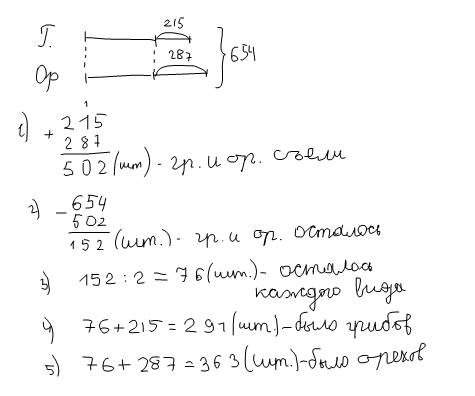 215
Г.
287
}654
Ор
1
1) + 215
287
502 (шт) - гр. и ор. съели
2) - 654
502
152 (шт.) - гр. и ор. осталось
3) 152 : 2 = 76 (шт.) - осталось
каждого вида
4) 76 + 215 = 291 (шт.) - было грибов
5) 76 + 287 = 363 (шт.) - было орехов